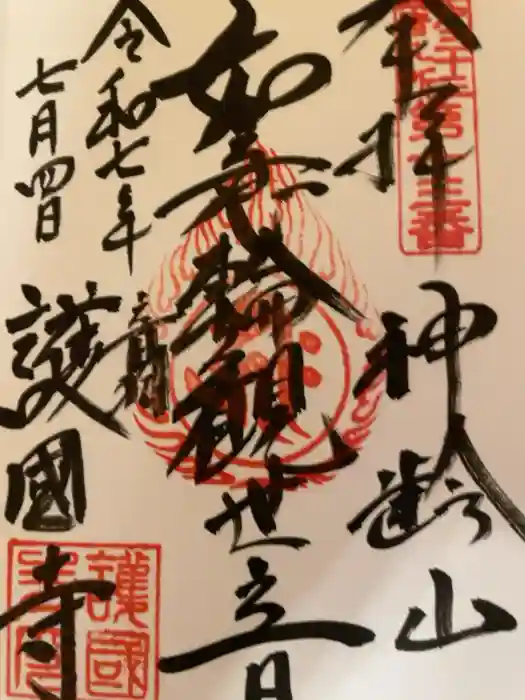 奉拝
神齢山
如意輪観世音
令和七年
七月四日
護國寺
護國